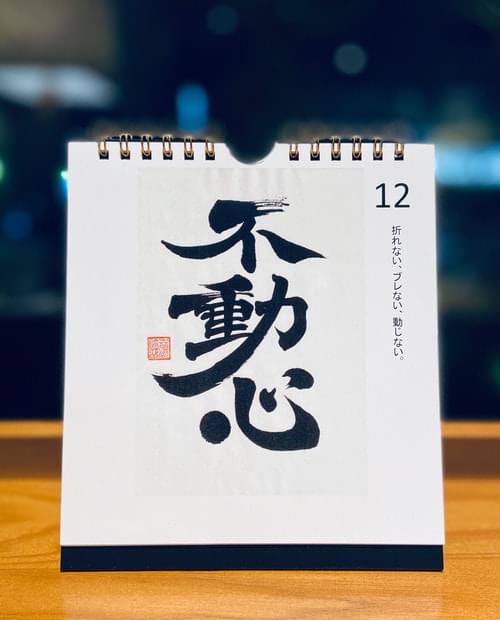 12
折れない、ブレない、動じない。
不動心